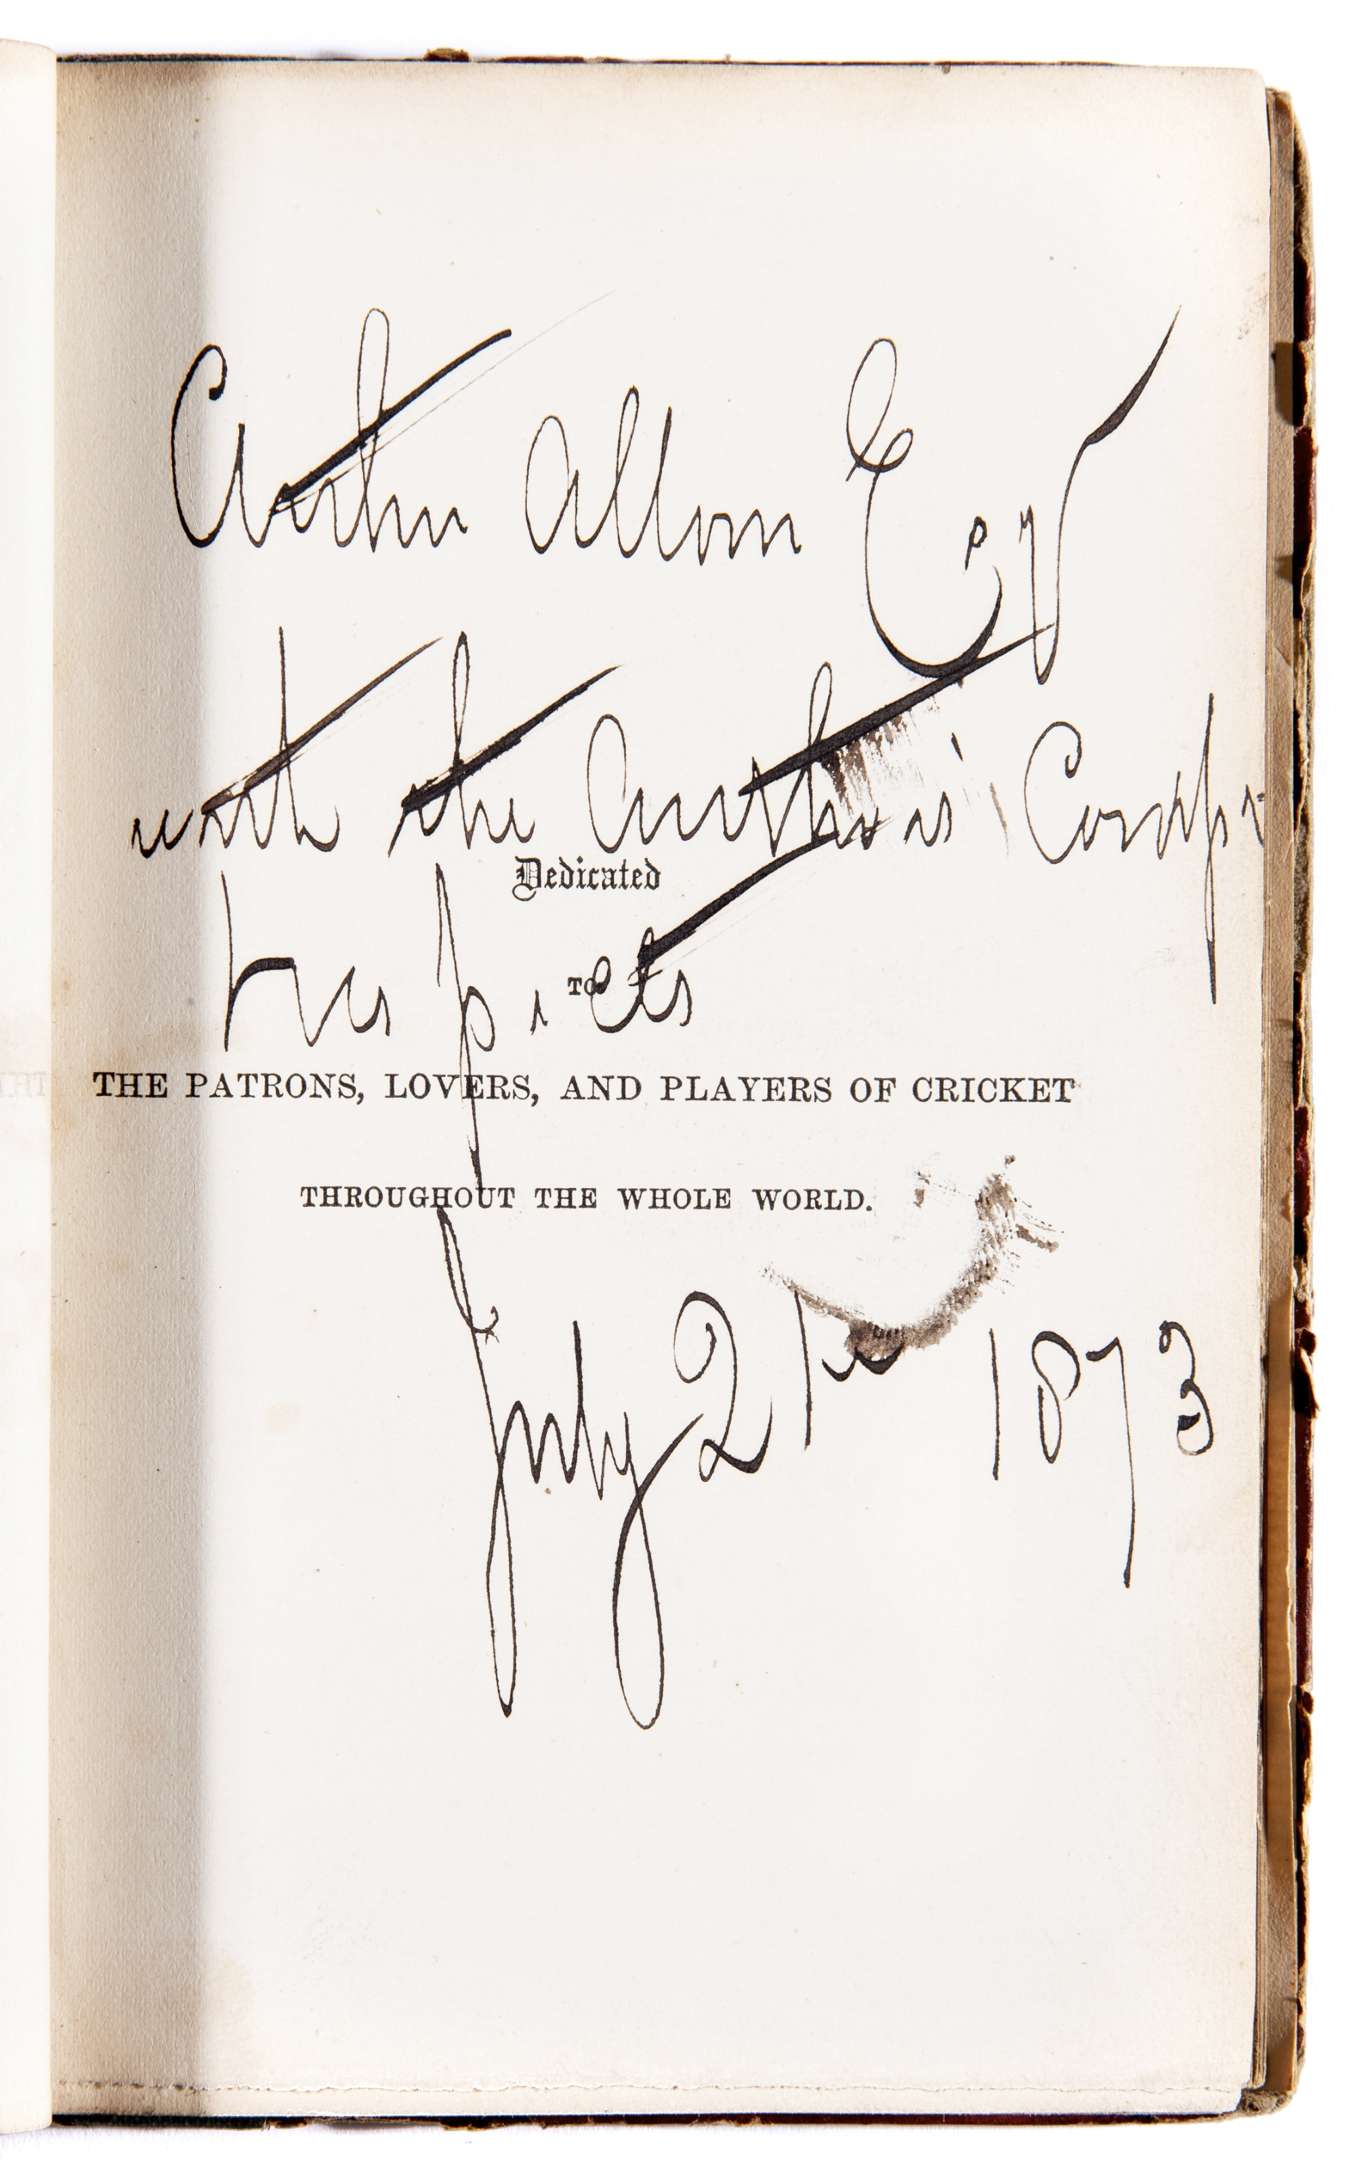 Arthur Allom Esqr
with the Author's Compts
Dedicated
respects
TO
THE PATRONS, LOVERS, AND PLAYERS OF CRICKET
THROUGHOUT THE WHOLE WORLD.
July 21st 1873